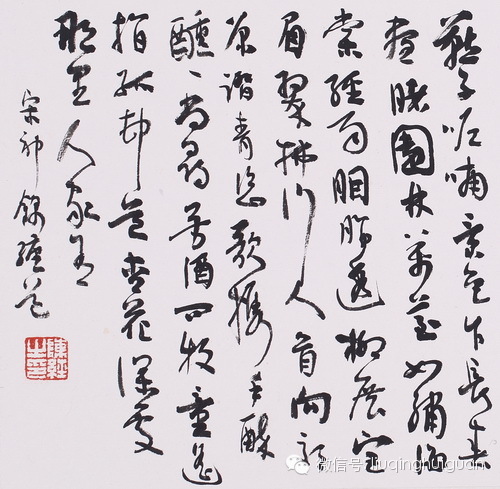 燕子呢喃景色乍長春
晝睹園林萬花如繡海
棠經雨胭脂透柳展宫
眉翠拂行人首向郊
原踏青恣歌攜手醉
醺々尚尋芳酒問牧童遥
指孤邨道杏花深處
那里人家有
宋祁錦纏道
陳經之印
微信号: liuqinghuiguan